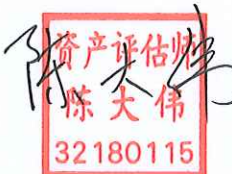 资产评估师
陈大伟
32180115
陈大伟